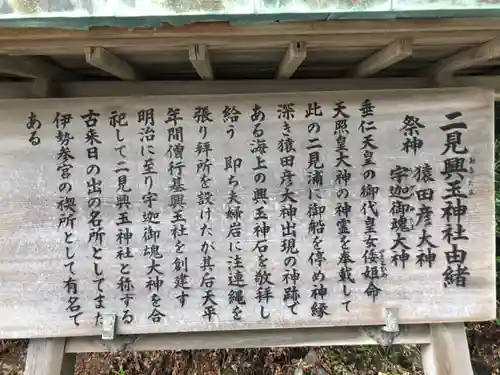 二見興玉神社由緒
おきたま
祭神 猿田彦大神
宇迦御魂大神
垂仁天皇の御代皇女倭姫命
天照皇大神の神霊を奉戴して
此の二見浦に御船を停め神縁
深き猿田彦大神出現の神跡で
ある海上の興玉神石を敬拝し
給う 即ち夫婦岩に注連縄を
張り拝所を設けたが其后天平
年間僧行基興玉社を創建す
明治に至り宇迦御魂大神を合
祀して二見興玉神社と称する
古来日の出の名所としてまた
伊勢参宮の禊所として有名で
ある